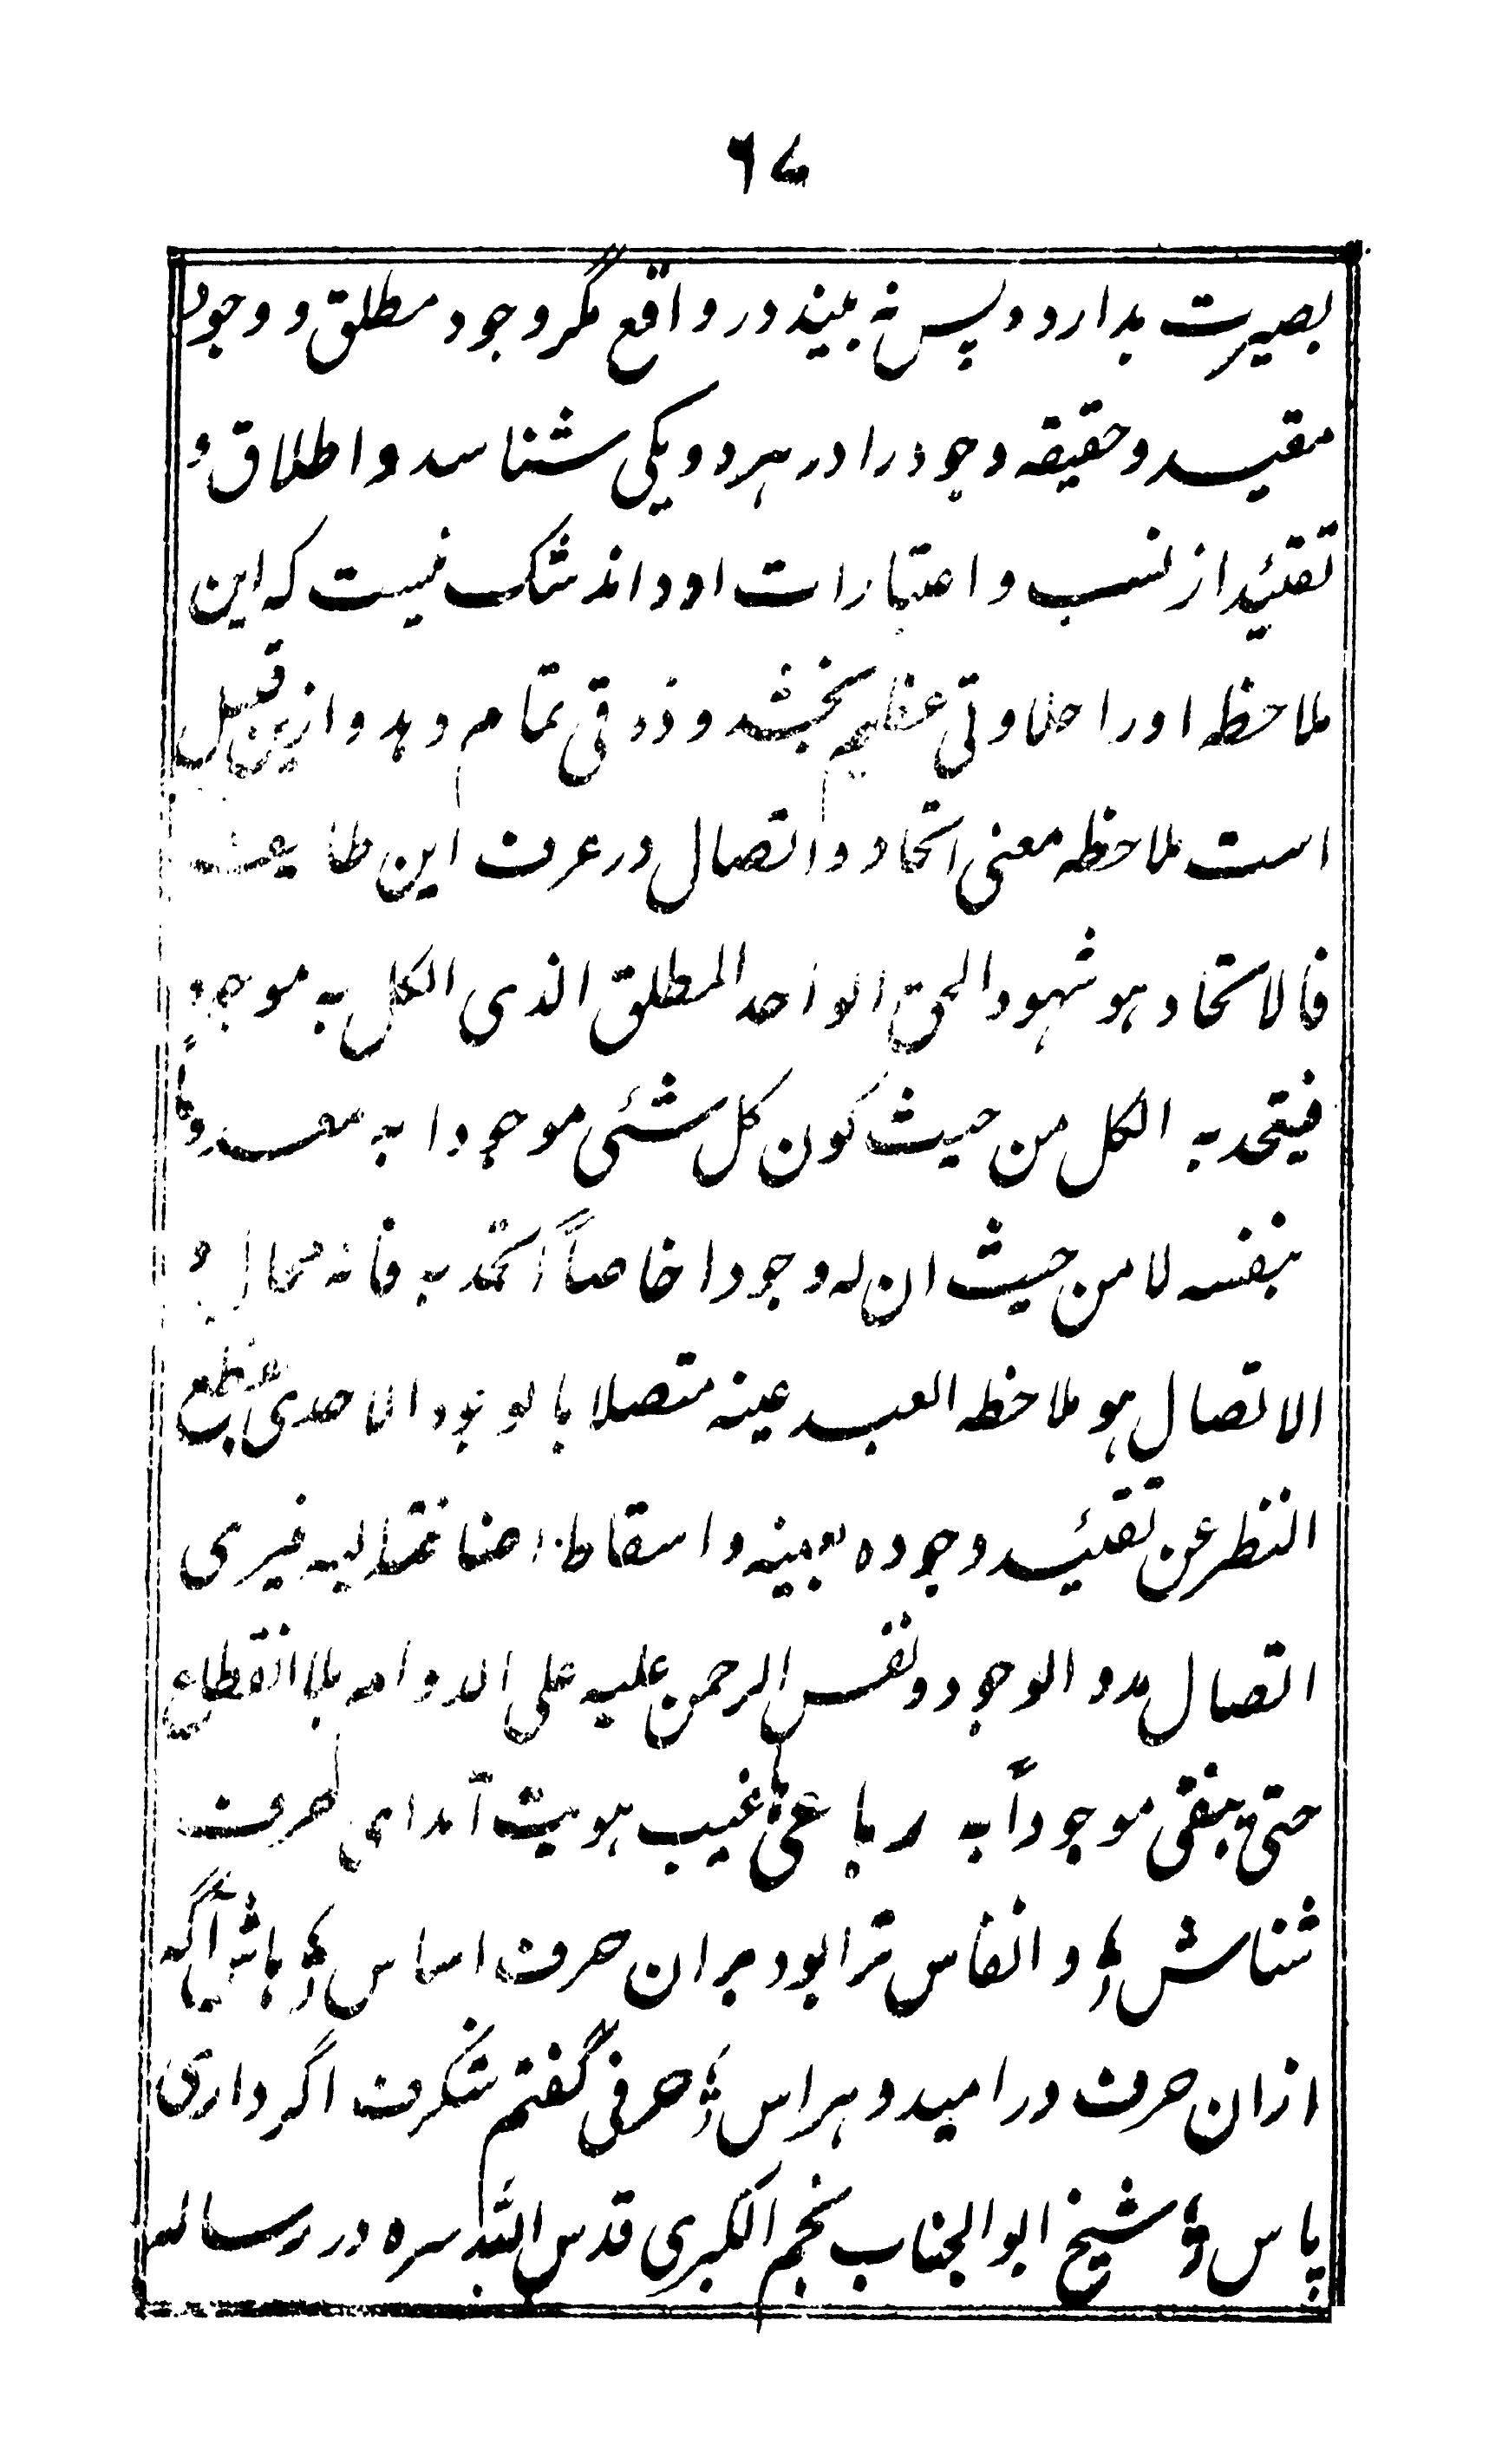 ۶۷
بصیرت بدارد و پس نه بیند در واقع مگر وجود مطلق و وجود
مقید و حقیقه وجود را در هر دو یکی شناسد و اطلاق و
تقئید از نسب و اعتبارات او داند شک نیست که این
ملاحظه او را حلاوتی عظیم بخشد و ذوقی تمام دهد و ازین قبیل
است ملاحظه معنی اتحاد و اتصال در عرف این طایفه
فالاتحاد هو شهود الحق الواحد المطلق الذی الکل به موجود
فیتحد به الکل من حیث کون کل شئی موجودا به معدوماً
بنفسه لا من حیث ان له وجودا خاصاً اتحد به فانه محال و
الاتصال هو ملاحظه العبد عینه متصلا بالوجود الاحدی بقطع
النظر عن تقئید وجوده بعینه و اسقاط اضافته الیه فیری
اتصال مدد الوجود و نفس الرحمن علیه علی الدوام بلا انقطاع
حتی یبقی موجوداً به رباعی غیب هویت آمد ای حرف
شناس و انفاس ترا بود بران حرف اساس باش آگه
ازان حرف در امید و هراس حرفی گفتم شگرف اگر داری
پاس شیخ ابو الجناب نجم الکبری قدس الله سره در رساله